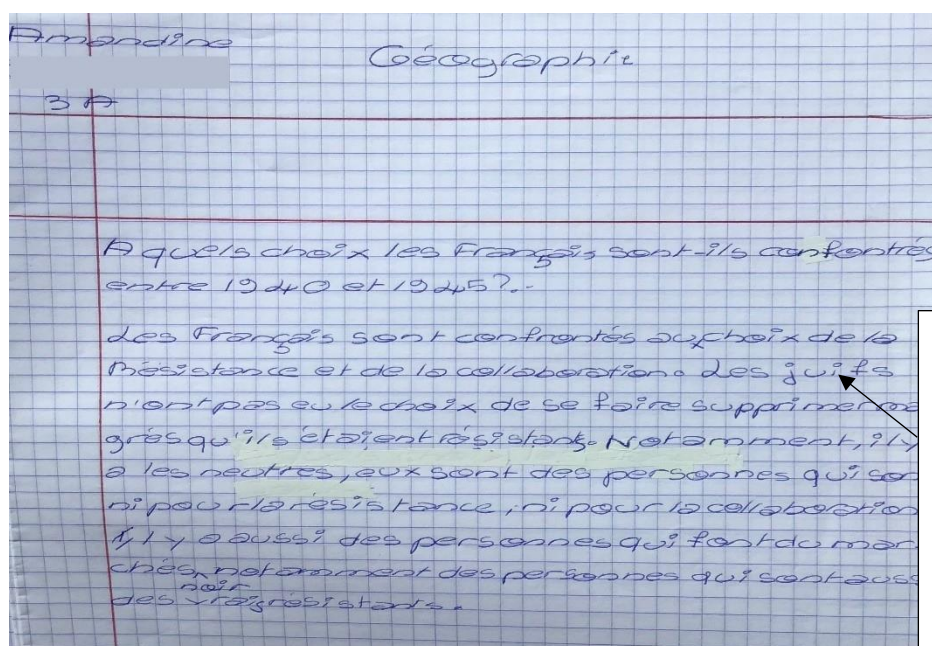 Amandine
Géographie
3A
A quels choix les Français sont-ils confontrés
entre 1940 et 1945?.
Les Français sont confrontés aux choix de la
Résistance et de la collaboration. Les juifs
n'ont pas eu le choix de se faire supprimer mal
grés qu'ils étaient résistant. Notamment, il y
a les neutres, eux sont des personnes qui son
ni pour la résistance, ni pour la collaboration
Il y a aussi des personnes qui font du mar
chés noir, notamment des personnes qui sont auss
des vrais résistants.